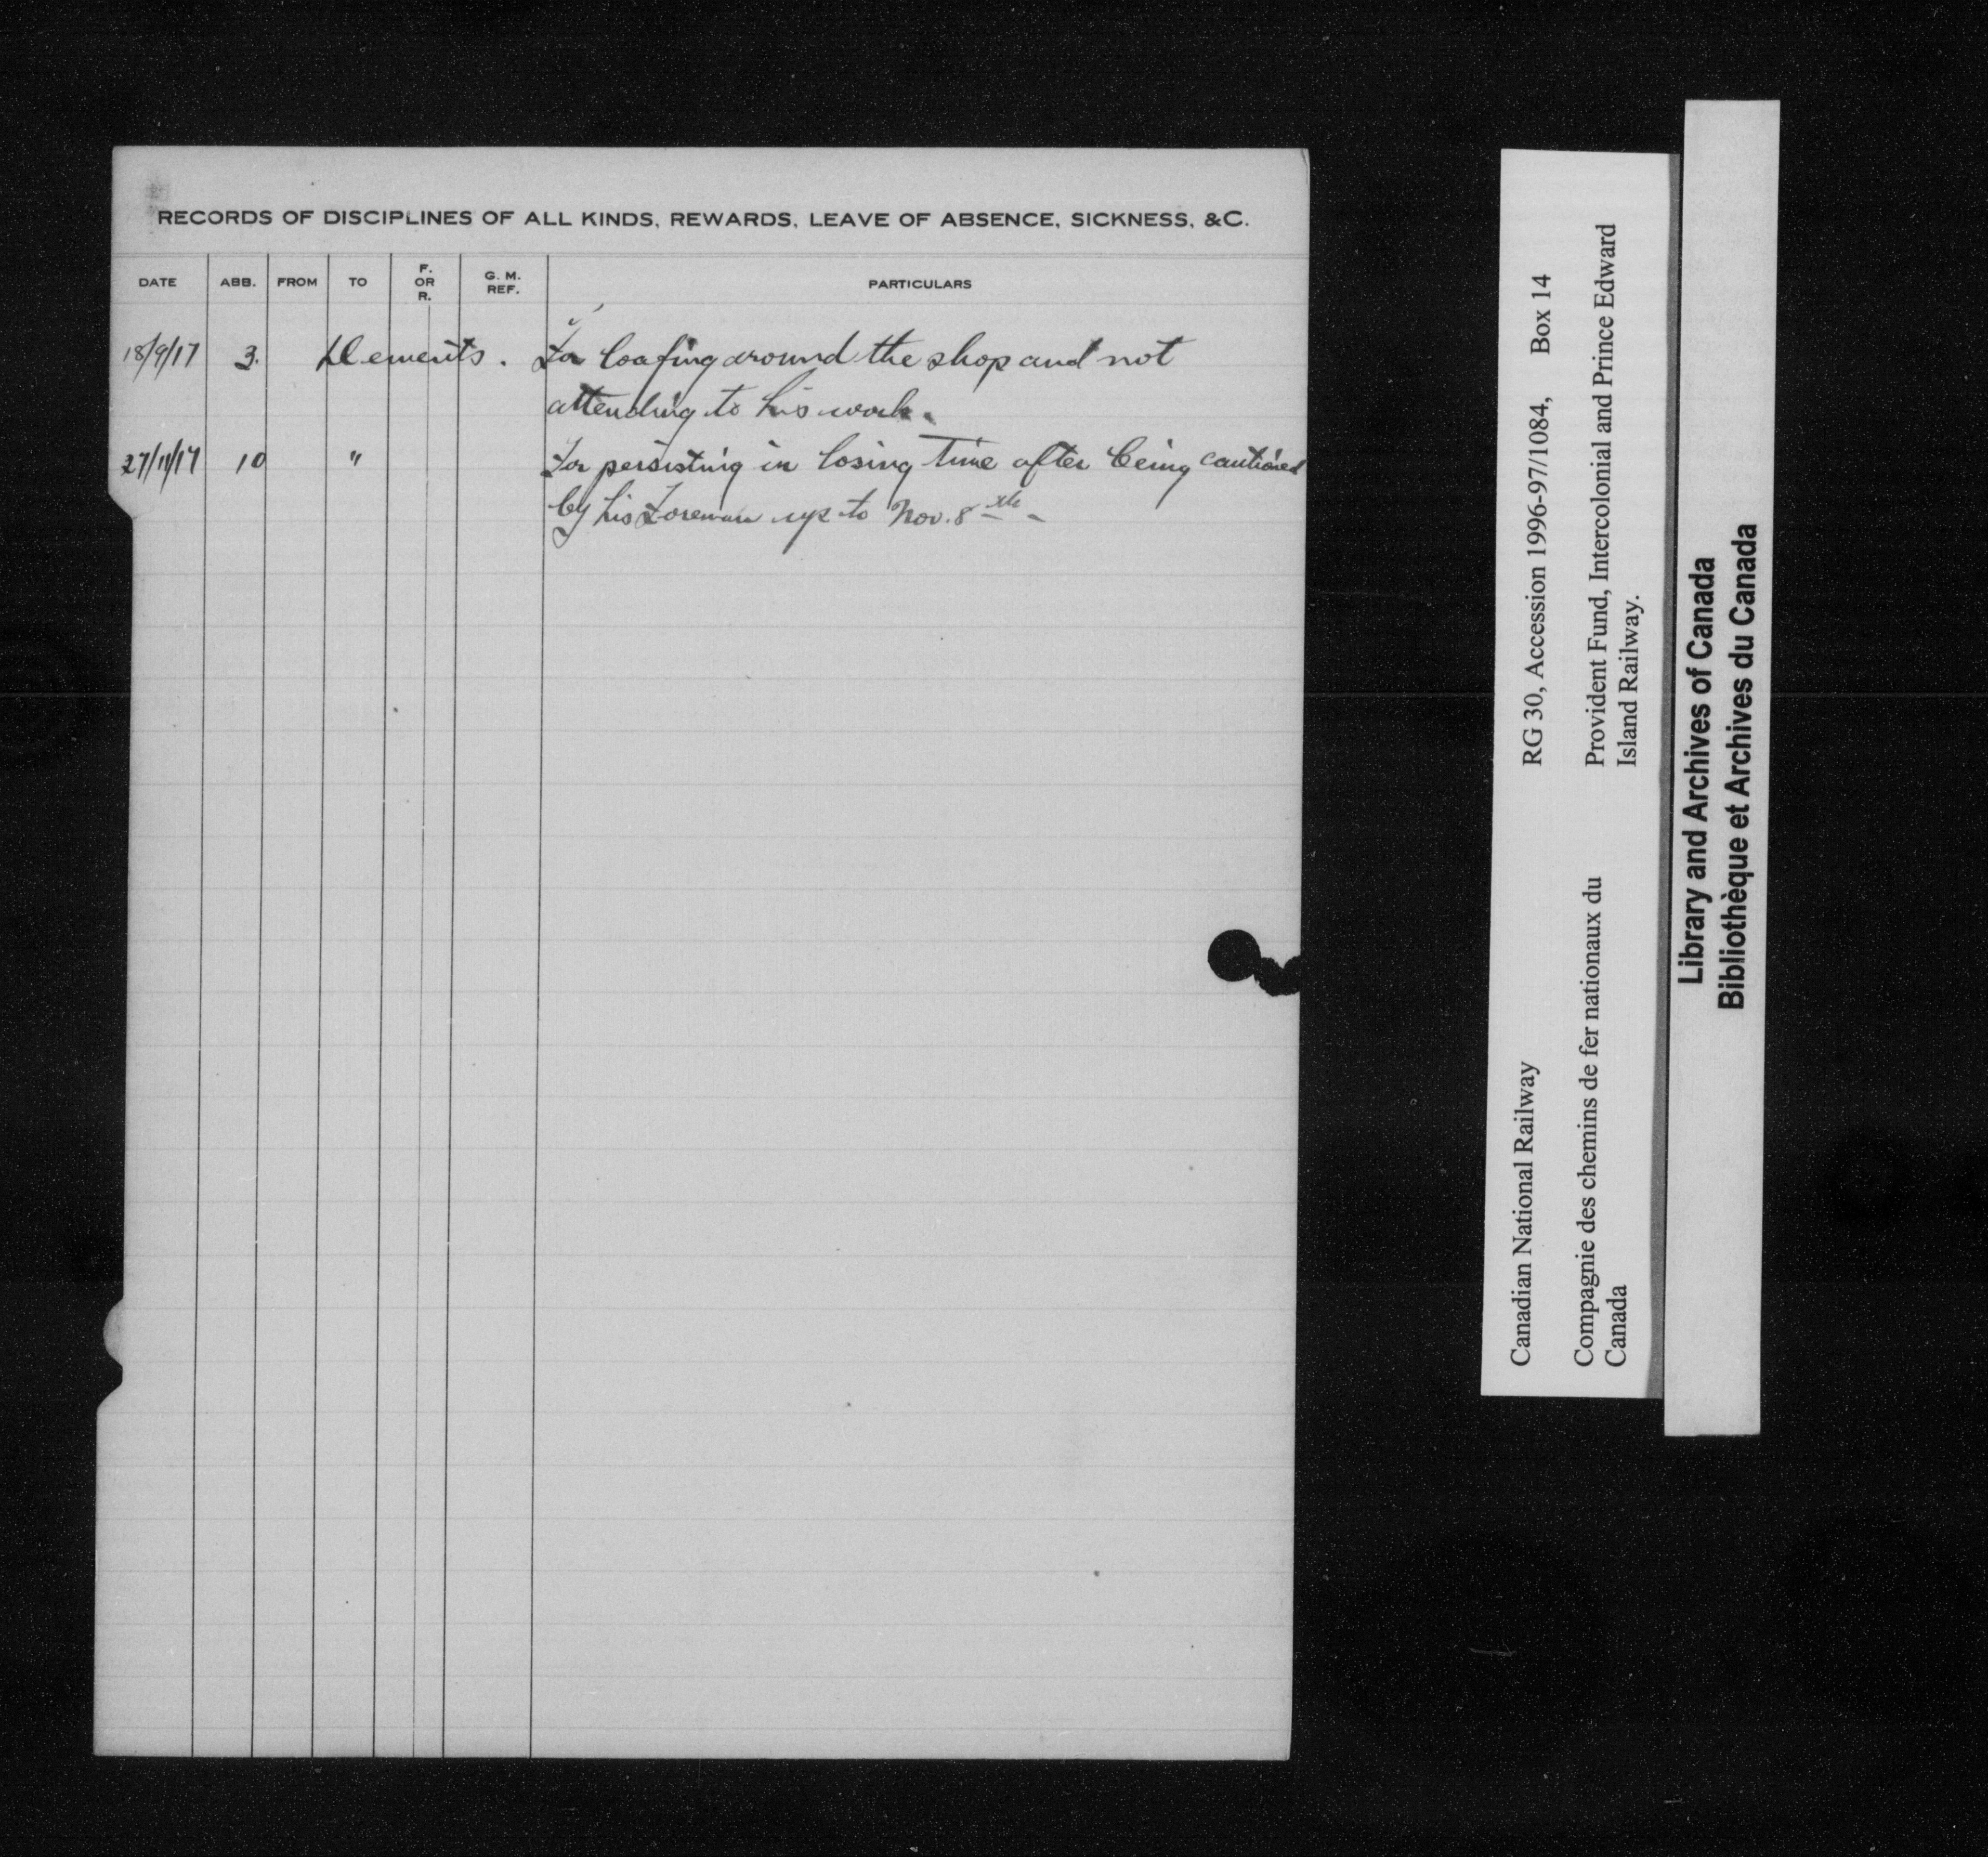 RECORDS OF DISCIPLINES OF ALL KINDS, REWARDS, LEAVE OF ABSENCE, SICKNESS, &C.
DATE ABB. FROM TO F. OR R. G. M. REF. PARTICULARS
18/9/17 3. Demerits. For loafing around the shop and not
attending to his work.
27/11/17 10 " For persisting in losing time after being cautioned
by his Foreman up to Nov. 8th -
Canadian National Railway RG 30, Accession 1996-97/1084, Box 14
Compagnie des chemins de fer nationaux du Provident Fund, Intercolonial and Prince Edward
Canada Island Railway.
Library and Archives of Canada
Bibliothèque et Archives du Canada